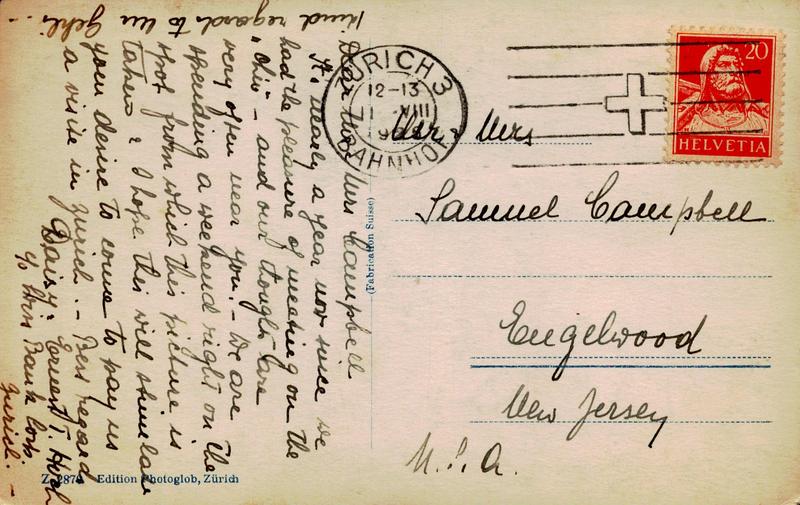 Dear Mr. & Mrs Campbell
It's nearly a year now since we
had the pleasure of meeting on the
"Ohio" - and our thoughts are
very often near you. - We are
spending a weekend right on the
spot from which this picture is
taken & I hope this will stimulate
your desire to come to pay us
a visit in Zurich. - Best regards
Daisy & Ernest T.
c/o Swiss Bank Corp.
Zurich. -
Kind regards to
ZURICH 3
12-13
VIII
BAHNHOF
20
HELVETIA
Mr & Mrs
Samuel Campbell
Engelwood
New Jersey
U.S.A.
(Fabrication Suisse)
Edition Photoglob, Zürich